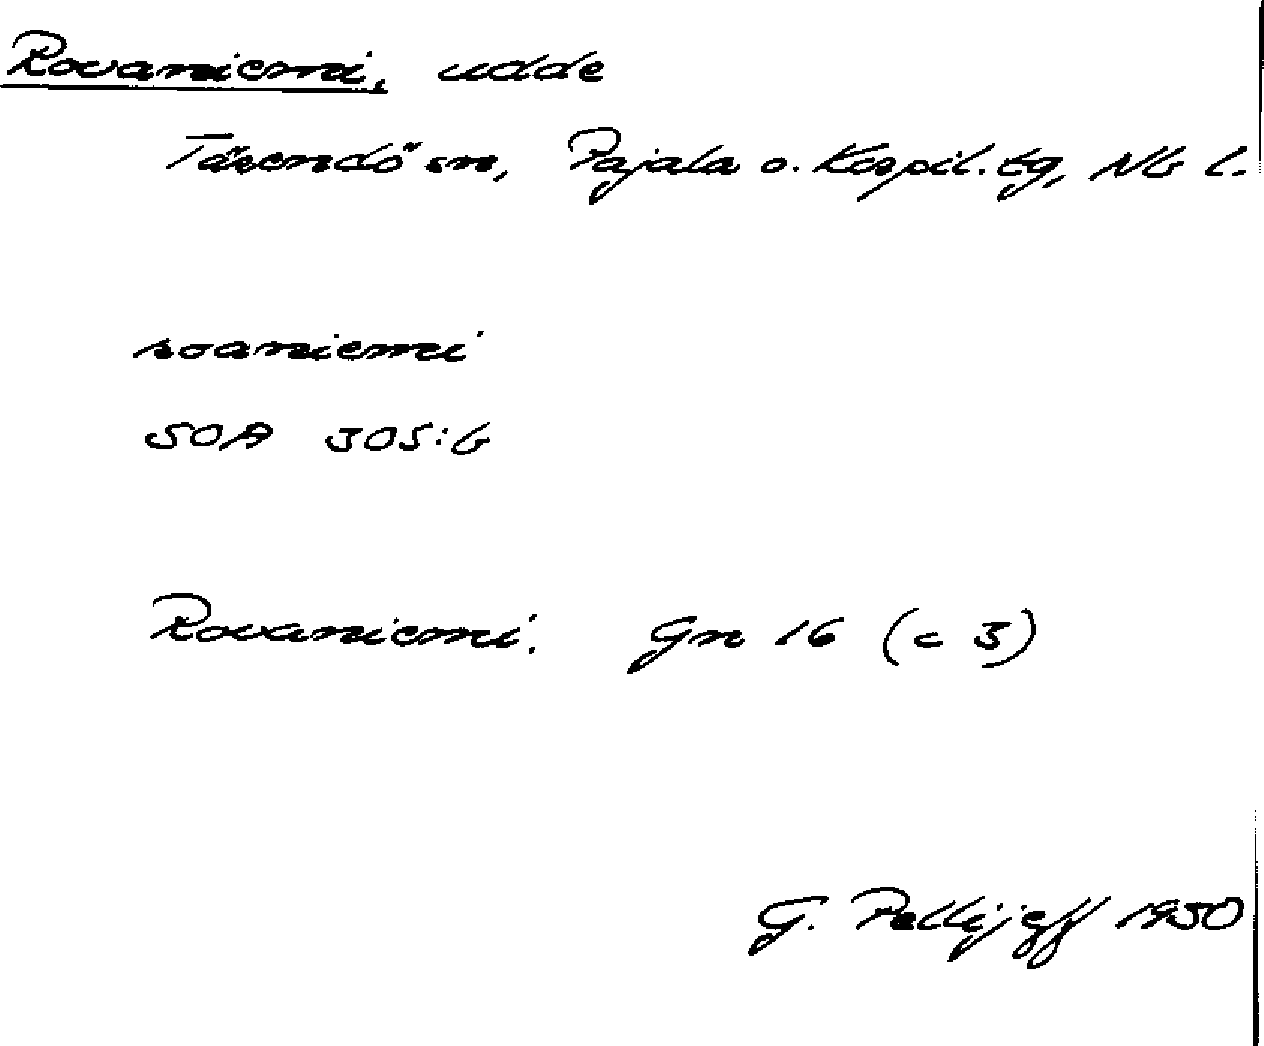 Rovaniemi, udde
Tärendö sn, Pajala o. Korpil. tg, Nb l.
roaniemi
SOA 305:6
Rovaniemi. Gn 16 (c 3)
G. Pellijeff 1950